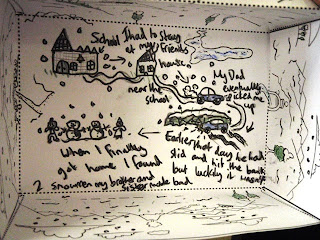 School I had to stay
at my friends
house
near the
school
My Dad
eventually
picked me
up
Earlier that day he had
slid and hit the bank
but luckily it was ok
When I finally
got home I found
2 snowmen my brother and
sister made